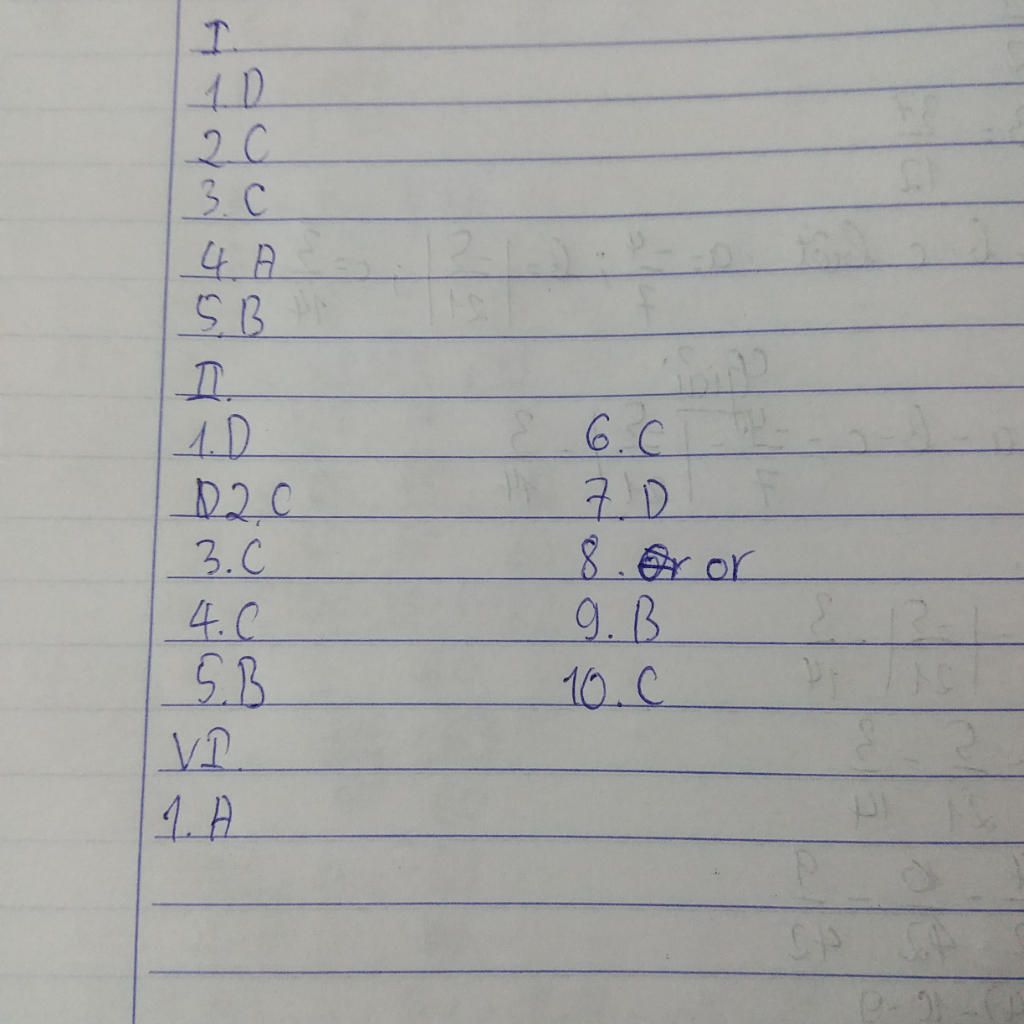 I.
1. D
2. C
3. C
4. A
5. B
II.
1. D
D2. C
3. C
4. C
5. B
6. C
7. D
8. or or
9. B
10. C
VI.
1. A